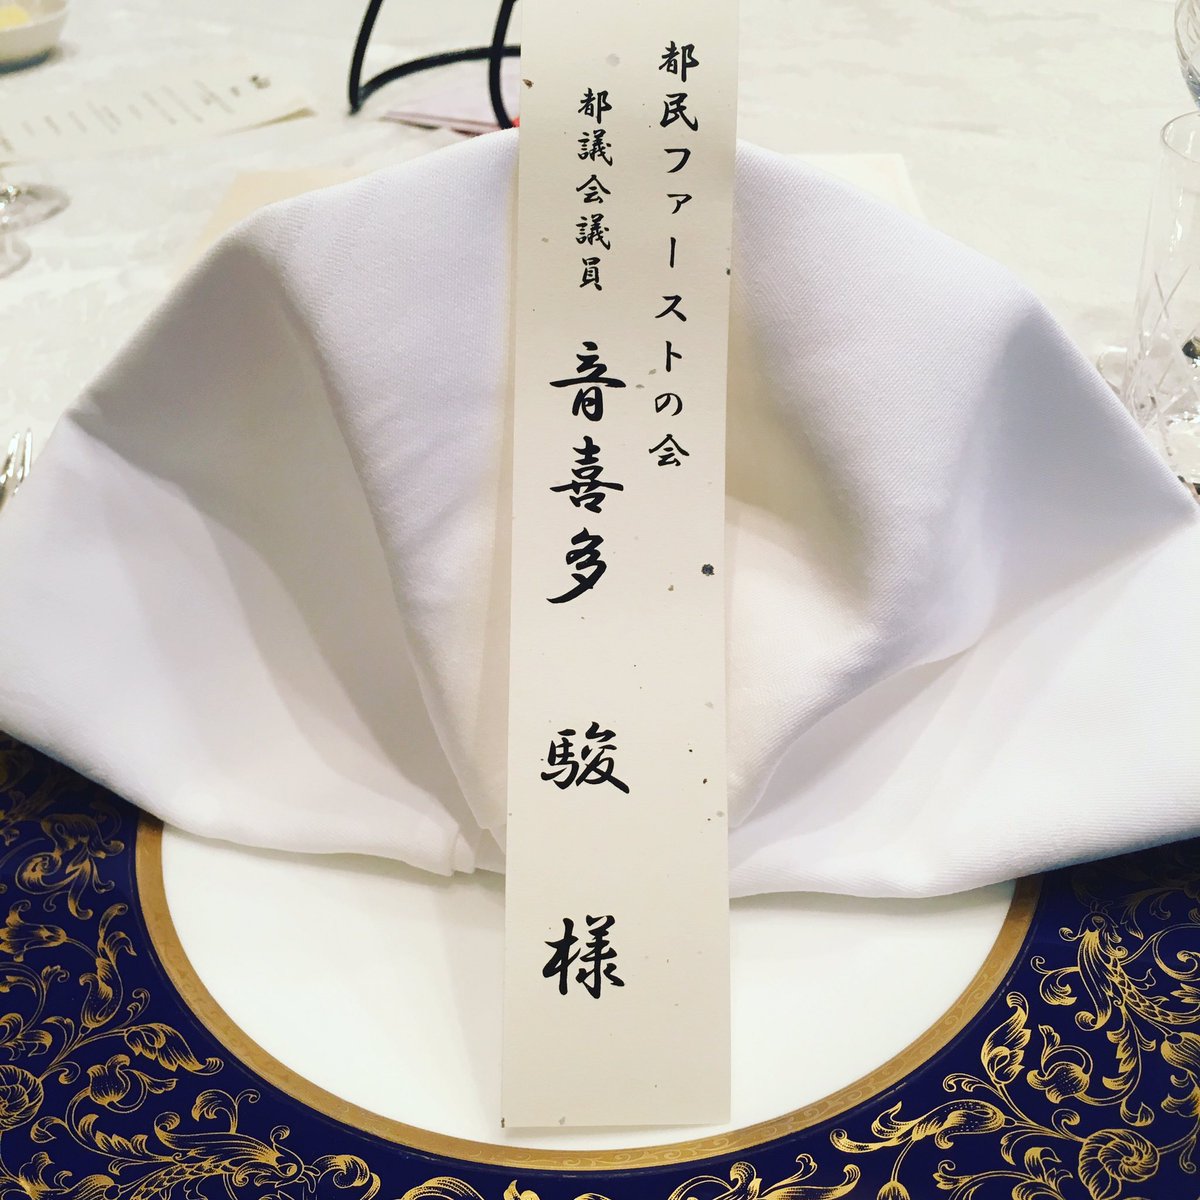 都民ファーストの会
都議会議員 音喜多 駿 様